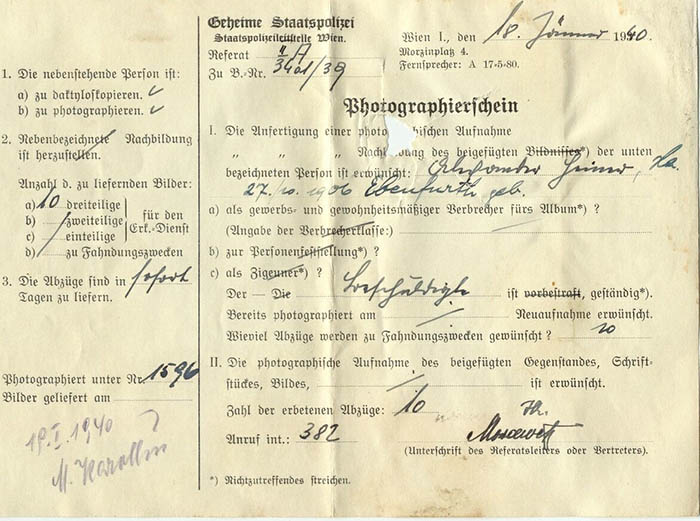 Geheime Staatspolizei
Staatspolizeileitstelle Wien.
Referat II A
Zu B.-Nr. 3401/39
Wien I., den 18. Jänner 1940.
Morzinplatz 4.
Fernsprecher: A 17-5-80.
1. Die nebenstehende Person ist:
a) zu daktyloskopieren.
b) zu photographieren.
2. Nebenbezeichnete Nachbildung
ist herzustellen.
Anzahl d. zu liefernden Bilder:
a) 10 dreiteilige
b) zweiteilige
c) einteilige
für den
Erk.-Dienst
d) zu Fahndungszwecken
3. Die Abzüge sind in sofort
Tagen zu liefern.
Photographiert unter Nr. 1596
Bilder geliefert am
19.I.1940
M.
Photographierschein
I. Die Anfertigung einer photographischen Aufnahme
„ „ „ Nachbildung des beigefügten Bildnisses*) der unten
bezeichneten Person ist erwünscht: Alexander
27./10. 1906 Ebenfurth geb.
a) als gewerbs- und gewohnheitsmäßiger Verbrecher fürs Album*) ?
(Angabe der Verbrecherklasse:)
b) zur Personenfeststellung*) ?
c) als Zigeuner*) ?
Der — Die Beschuldigte ist vorbestraft, geständig*).
Bereits photographiert am Neuaufnahme erwünscht.
Wieviel Abzüge werden zu Fahndungszwecken gewünscht ? 10
II. Die photographische Aufnahme des beigefügten Gegenstandes, Schrift-
stückes, Bildes, ist erwünscht.
Zahl der erbetenen Abzüge: 10
Anruf int.: 382
(Unterschrift des Referatsleiters oder Vertreters).
*) Nichtzutreffendes streichen.